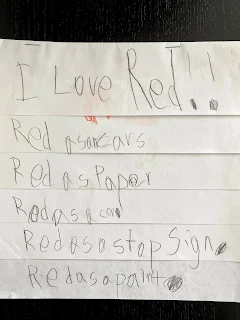 I Love Red!!
Red as cars
Red as Paper
Red as a card
Red as a stop Sign.
Red as a paint.